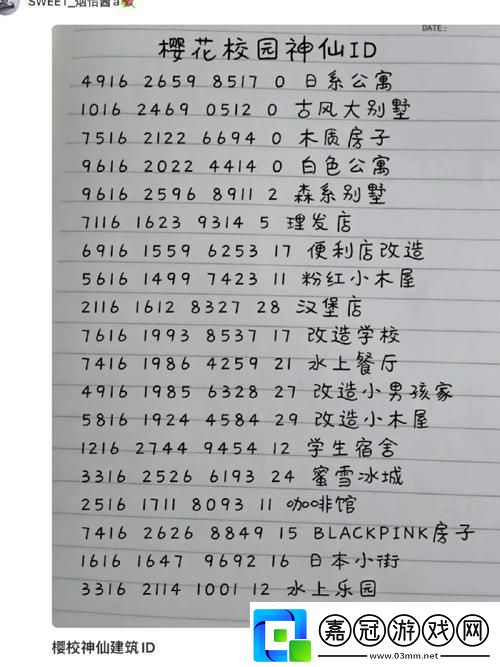 SWEET_烟怡酱a
DATE:
樱花校园神仙ID
4916 2659 8517 0 日系公寓
1016 2469 0512 0 古风大别墅
7516 2122 6694 0 木质房子
9616 2022 4414 0 白色公寓
9616 2596 8911 2 森系别墅
7116 1623 9314 5 理发店
6916 1559 6253 17 便利店改造
5616 1499 7423 11 粉红小木屋
2116 1612 8327 28 汉堡店
7616 1993 8537 17 改造学校
7416 1986 4259 21 水上餐厅
4916 1985 6328 27 改造小男孩家
5816 1924 4584 29 改造小木屋
1216 2744 9454 12 学生宿舍
3316 2526 6193 24 蜜雪冰城
2516 1711 8093 11 咖啡馆
7416 2626 8849 15 BLACKPINK房子
1616 1647 9692 16 日本小街
3316 2114 1001 12 水上乐园
樱校神仙建筑ID
嘉冠游戏网
www.03mm.net